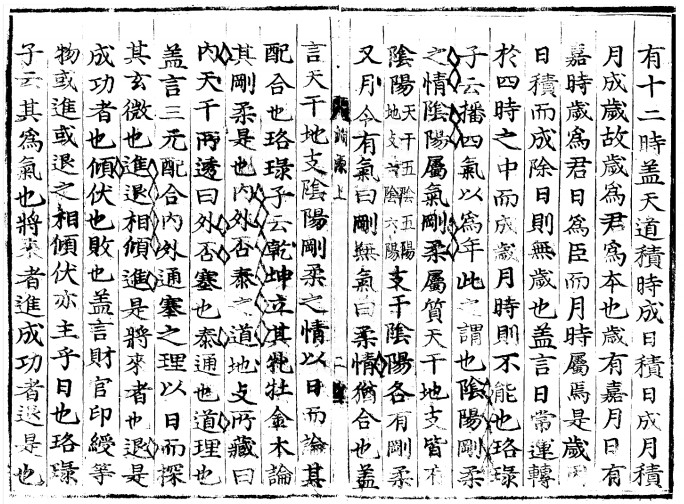 有十二時盖天道積時成日積日成月積
月成歲故歲爲君爲本也歲有嘉月日有
嘉時歲爲君日爲臣而月時屬焉是歲
日積而成除日則無歲也盖言日常運轉
於四時之中而成歲月時則不能也珞琭
子云播四氣以爲年此之謂也陰陽剛柔
之情陰陽屬氣剛柔屬質天干地支皆有
陰陽天干五陰五陽地支六陰六陽支干陰陽各有剛柔
又月令有氣曰剛無氣曰柔情猶合也盖
上
言天干地支陰陽剛柔之情以日而論其
配合也珞琭子云乾坤立其牝牡金木論
其剛柔是也内外否泰之道地支所藏曰
内天干所透曰外否塞也泰通也道理也
盖言三元配合内外通塞之理以日而探
其玄微也進退相傾進是將來者也退是
成功者也傾伏也敗也盖言財官印綬等
物或進或退之相傾伏亦主乎日也珞琭
子云其爲氣也將來者進成功者退是也